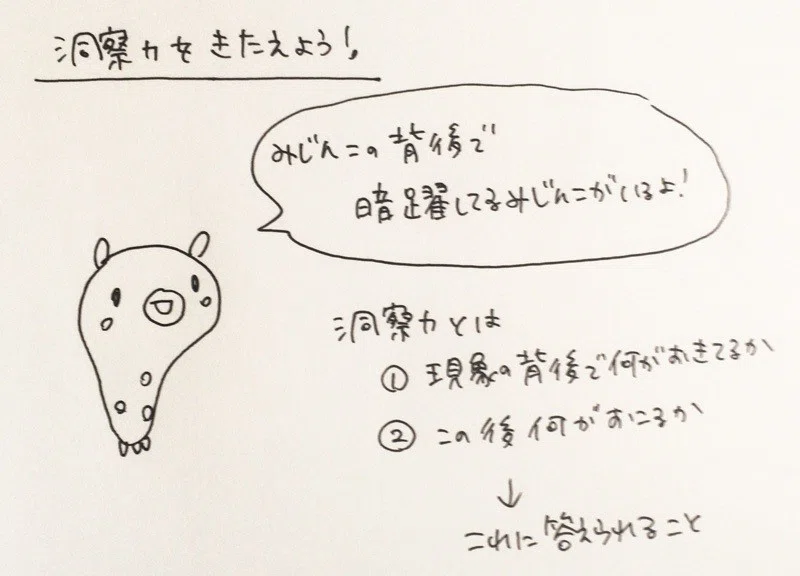 洞察力をきたえよう!
みじんこの背後で
暗躍してるみじんこがいるよ!
洞察力とは
① 現象の背後で何がおきてるか
② この後何がおこるか
↓
これに答えられること